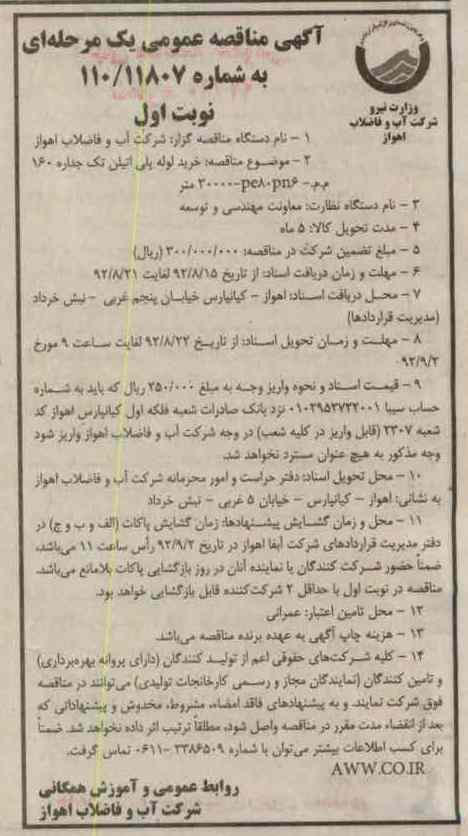 آگهی مناقصه عمومی یک مرحله‌ای
به شماره ۱۱۰/۱۱۸۰۷
نوبت اول
وزارت نیرو
شرکت آب و فاضلاب
اهواز
۱ – نام دستگاه مناقصه گزار: شرکت آب و فاضلاب اهواز
۲ – موضوع مناقصه: خرید لوله پلی اتیلن تک جداره ۱۶۰
م.م.- pe۸۰pn۶-۳۰۰۰۰ متر
۳ – نام دستگاه نظارت: معاونت مهندسی و توسعه
۴ – مدت تحویل کالا: ۵ ماه
۵ – مبلغ تضمین شرکت در مناقصه: ۳۰۰/۰۰۰/۰۰۰ (ریال)
۶ – مهلت و زمان دریافت اسناد: از تاریخ ۹۲/۸/۱۵ لغایت ۹۲/۸/۲۱
۷ – محل دریافت اسناد: اهواز – کیانپارس خیابان پنجم غربی – نبش خرداد
(مدیریت قراردادها)
۸ – مهلت و زمان تحویل اسناد: از تاریخ ۹۲/۸/۲۲ لغایت ساعت ۹ مورخ
۹۲/۹/۲
۹ – قیمت اسناد و نحوه واریز وجه به مبلغ ۲۵۰/۰۰۰ ریال که باید به شماره
حساب سیبا ۰۱۰۲۹۵۳۷۲۲۰۰۱ نزد بانک صادرات شعبه فلکه اول کیانپارس اهواز کد
شعبه ۲۳۰۷ (قابل واریز در کلیه شعب) در وجه شرکت آب و فاضلاب اهواز واریز شود
وجه مذکور به هیچ عنوان مسترد نخواهد شد.
۱۰ – محل تحویل اسناد: دفتر حراست و امور محرمانه شرکت آب و فاضلاب اهواز
به نشانی: اهواز – کیانپارس – خیابان ۵ غربی – نبش خرداد
۱۱ – محل و زمان گشایش پیشنهادها: زمان گشایش پاکات (الف و ب و ج) در
دفتر مدیریت قراردادهای شرکت آبفا اهواز در تاریخ ۹۲/۹/۲ رأس ساعت ۱۱ می‌باشد،
ضمناً حضور شرکت کنندگان یا نماینده آنان در روز بازگشایی پاکات بلامانع می‌باشد.
مناقصه در نوبت اول با حداقل ۲ شرکت‌کننده قابل بازگشایی خواهد بود.
۱۲ – محل تامین اعتبار: عمرانی
۱۳ – هزینه چاپ آگهی به عهده برنده مناقصه می‌باشد.
۱۴ – کلیه شرکت‌های حقوقی اعم از تولید کنندگان (دارای پروانه بهره‌برداری)
و تامین کنندگان (نمایندگان مجاز و رسمی کارخانجات تولیدی) می‌توانند در مناقصه
فوق شرکت نمایند. و به پیشنهادهای فاقد امضاء، مشروط، مخدوش و پیشنهاداتی که
بعد از انقضاء مدت مقرر در مناقصه واصل شود، مطلقاً ترتیب اثر داده نخواهد شد. ضمناً
برای کسب اطلاعات بیشتر می‌توان با شماره ۳۳۸۶۵۰۹-۰۶۱۱ تماس گرفت.
AWW.CO.IR
روابط عمومی و آموزش همگانی
شرکت آب و فاضلاب اهواز